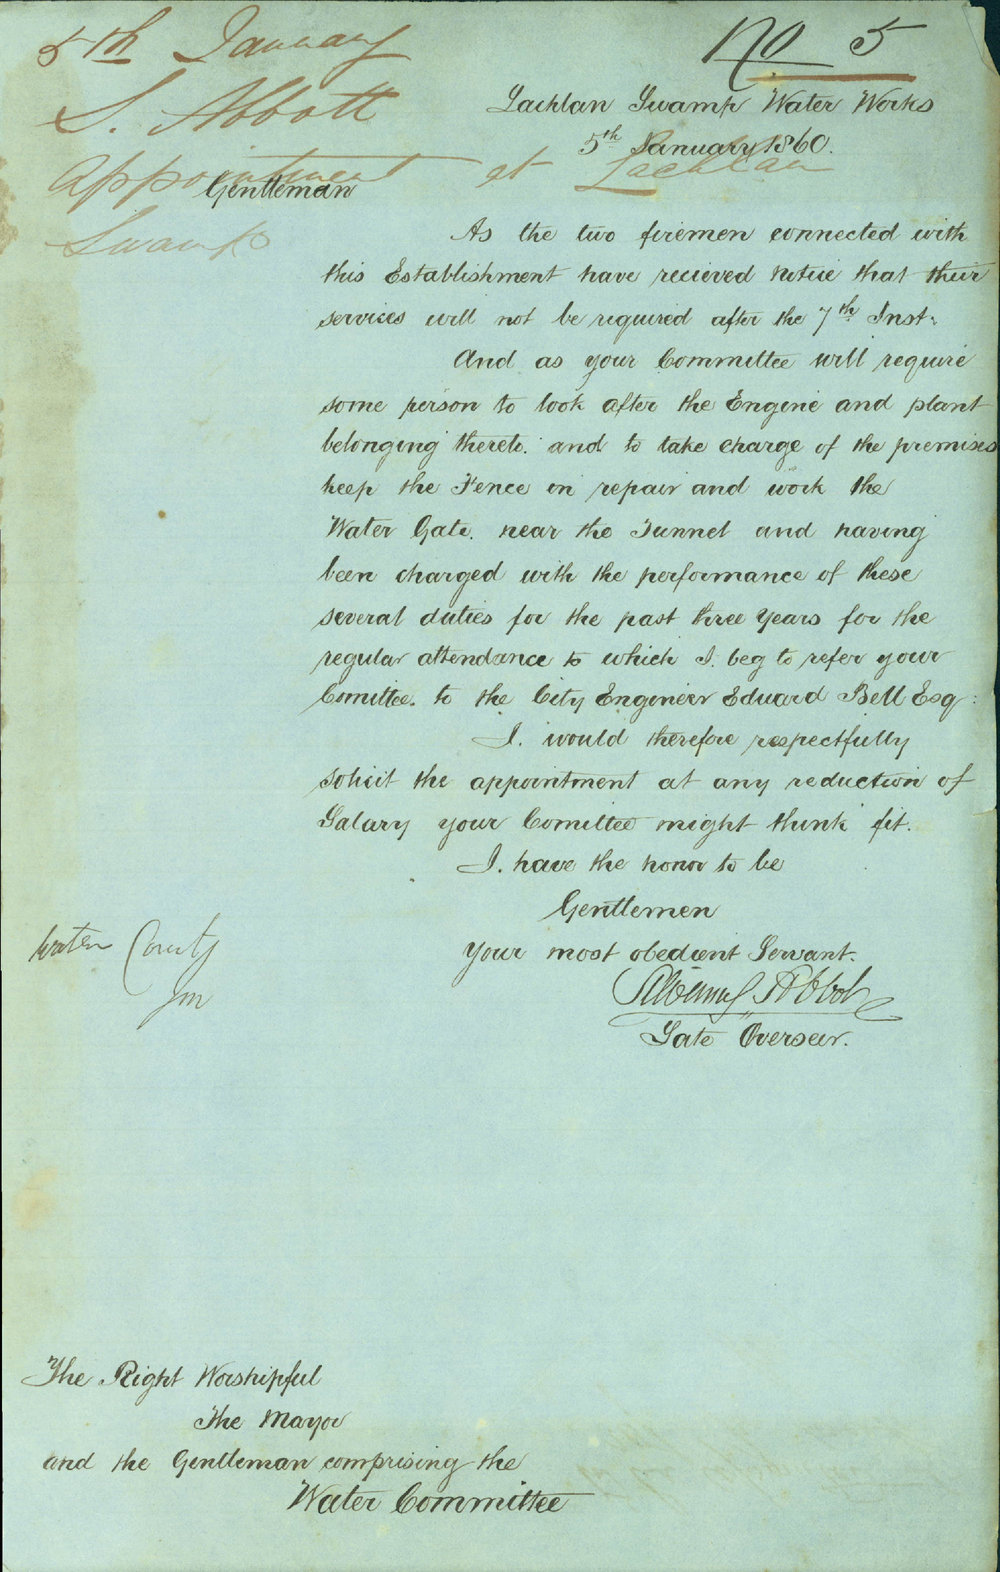 No 5
5th January
S. Abbott
Appointment at Lachlan
Swamp
Lachlan Swamp Water Works
5th January 1860.
Gentleman
As the two firemen connected with
this Establishment have recieved notice that their
services will not be required after the 7th Inst.
And as your Committee will require
some person to look after the Engine and plant
belonging thereto. and to take charge of the premises
keep the Fence in repair and work the
Water Gate. near the Tunnel and having
been charged with the performance of these
several duties for the past three Years for the
regular attendance to which I. beg to refer your
Comittee. to the City Engineer Edward Bell Esq:
I. would therefore respectfully
solicit the appointment at any reduction of
Salary your Comittee might think fit.
I. have the honor to be
Gentlemen
your most obedient Servant.
Abbot
Late Overseer.
Water
The Right Worshipful
The Mayor
and the Gentleman comprising the
Water Committee